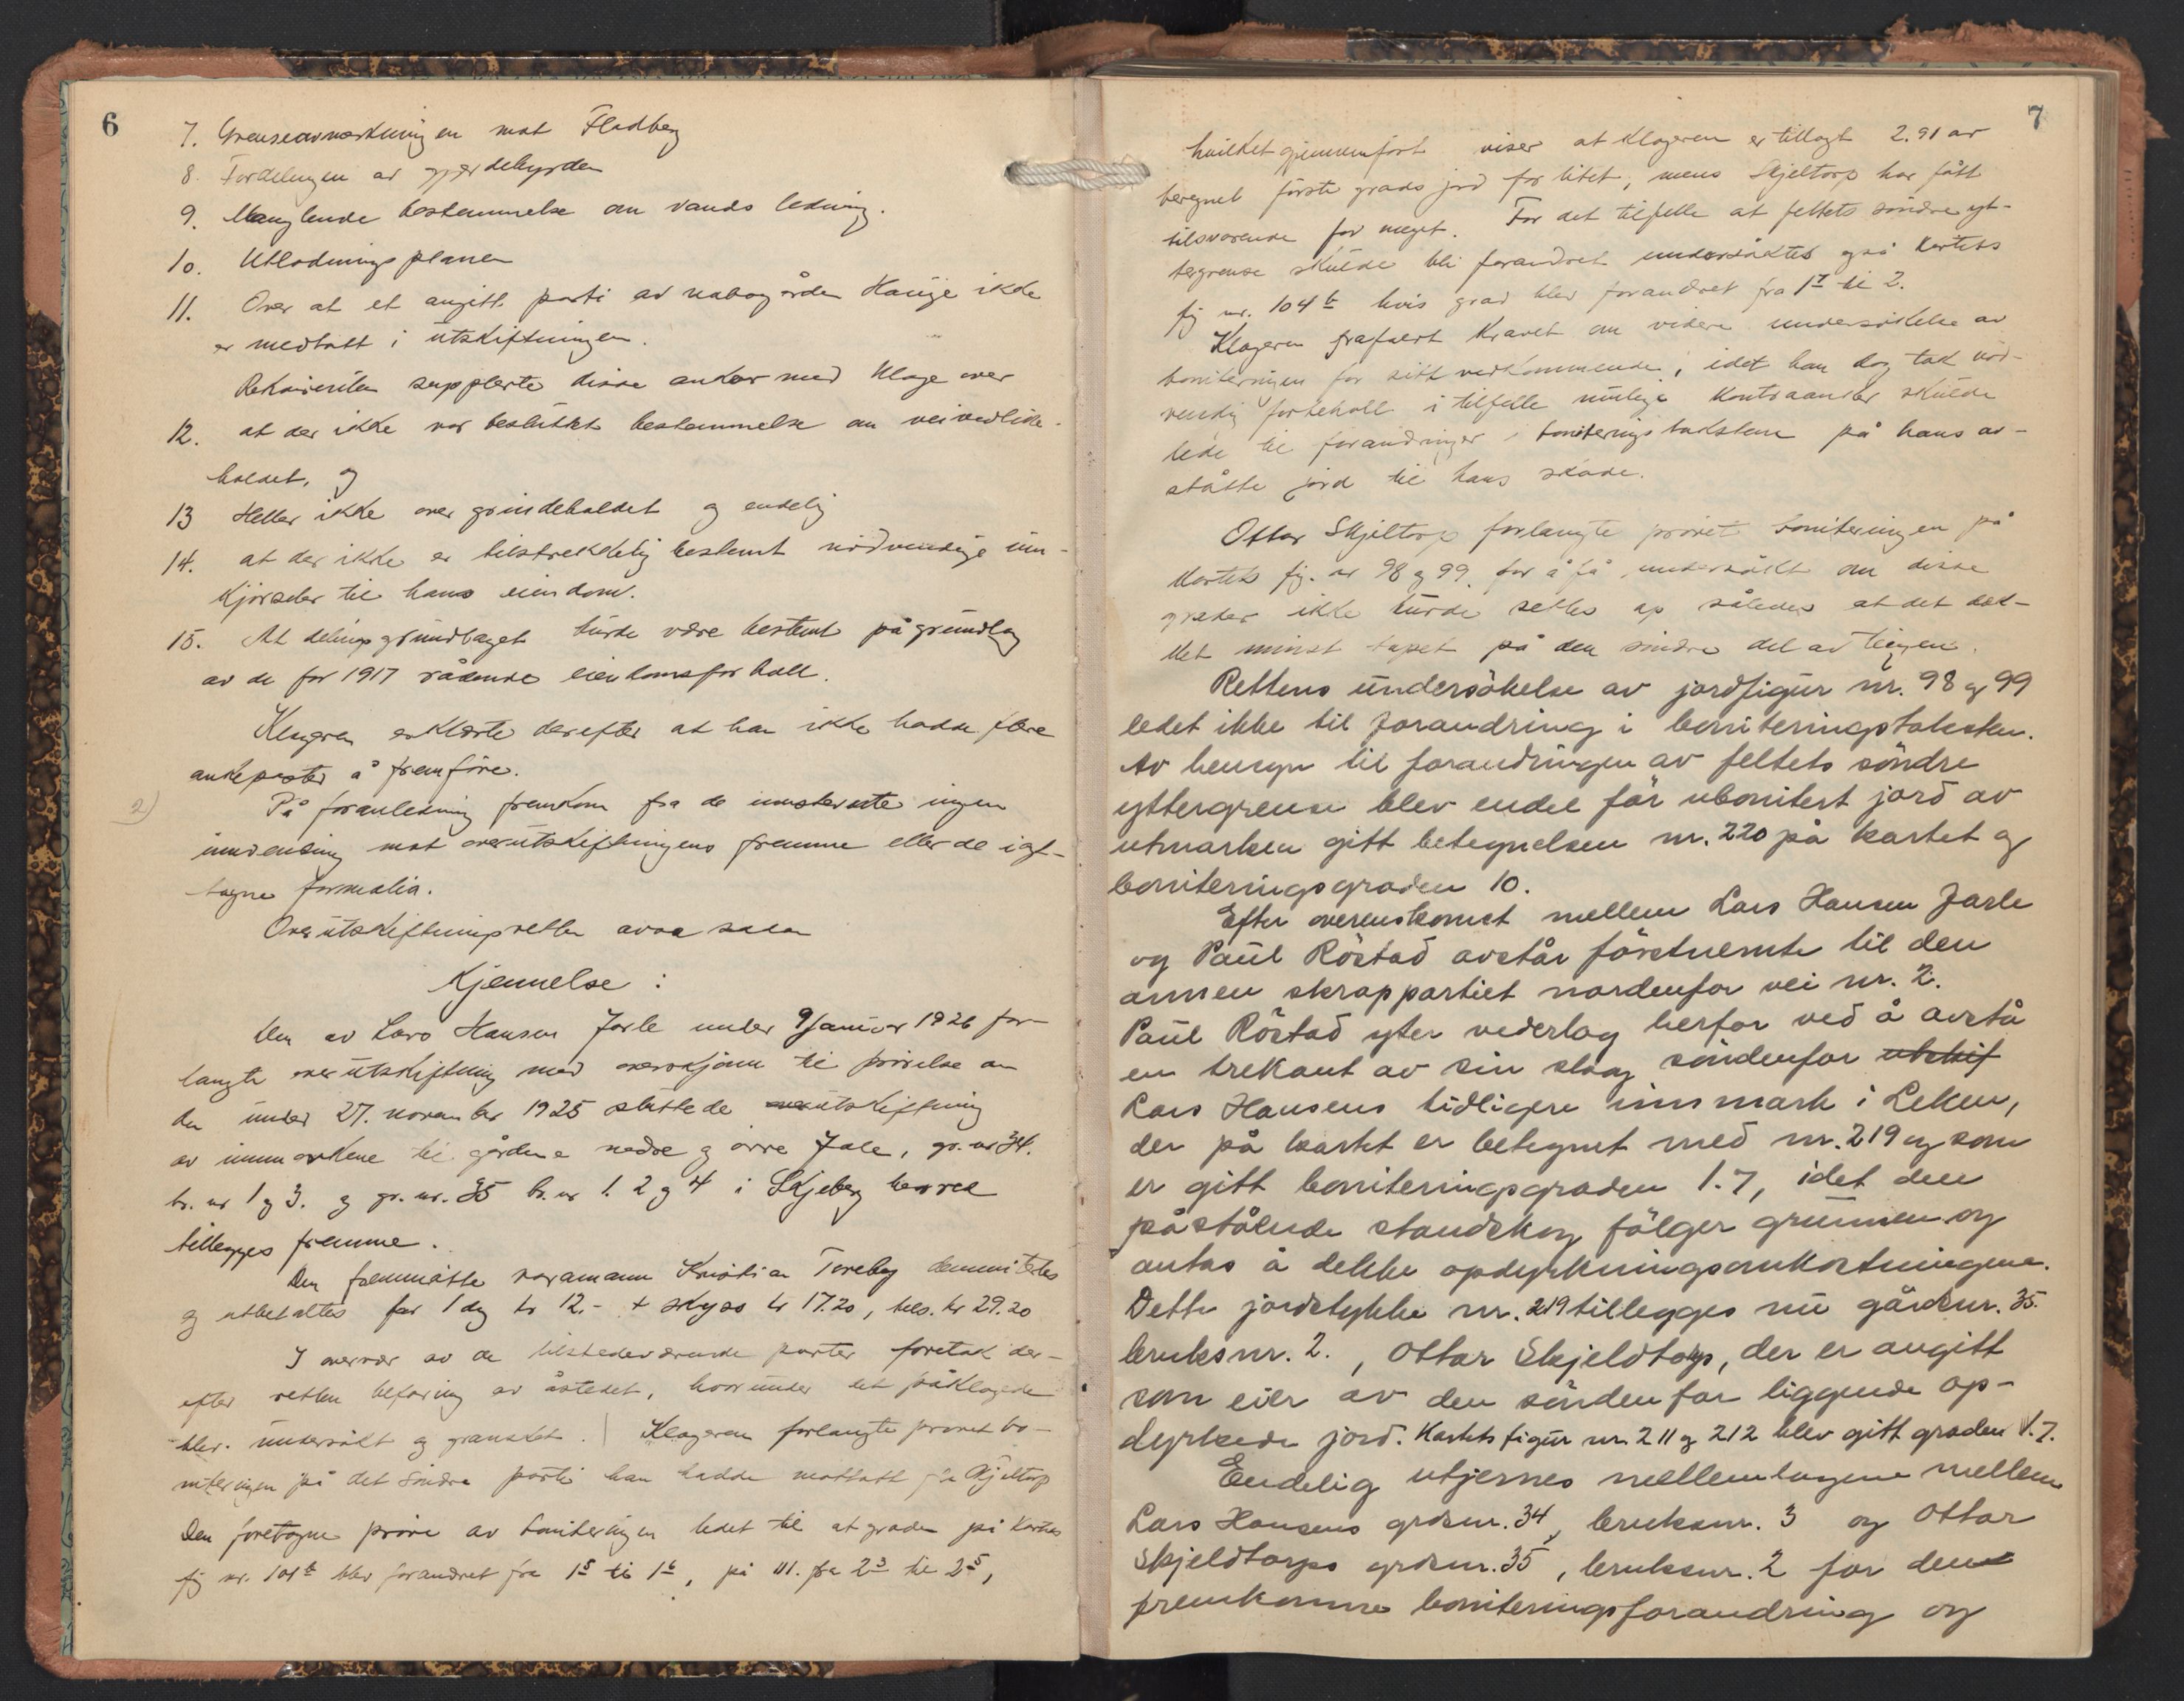 6
7. Grenseavmerkningen mot Fladberg
8. Fordelingen av gjærdebyrden
9. Manglende bestemmelse om vands ledning.
10. Utlodningsplanen
11. Over at et angitt parti av nabogården Hauge ikke
er medtatt i utskiftningen.
Rekvirenten supplerte disse anker med klage over
12. at der ikke var besluttet bestemmelse om veivedlike-
holdet, og
13 Heller ikke over grindeholdet og endelig
14. at der ikke er tilstrekkelig bestemt nödvendige inn-
kjörseler til hans eiendom.
15. At delingsgrundlaget burde være bestemt på grundlag
av de för 1917 rådende eiendomsforhold.
Klageren erklærte derefter at han ikke hadde flere
ankeposter å fremföre.
2)
På foranledning fremkom fra de innstevnte ingen
innvending mot overutskiftningens fremme eller de iagt-
tagne formalia.
Overutskiftningsretten avsa sådan
Kjennelse:
Den av Lars Hansen Jarle under 9 januar 1926 for-
langte overutskiftning med overskjönn til prövelse av
den under 27. november 1925 sluttede utskiftning
av innmarkene til gårdene nedre og övre Jale, gr. nr 34.
br. nr 1 og 3. og gr. nr. 35 br. nr 1. 2 og 4 i Skjeberg herred
tillegges fremme.
Den fremmötte varamann Kristian Toreby demmitertes
og utbetaltes for 1 dag kr 12.- + skyss kr 17.20, tils. kr 29.20
I overvær av de tilstedeværende parter foretok der-
efter retten befaring av åstedet, hvorunder det påklagede
blev undersökt og gransket. | Klageren forlangte prövet bo-
niteringen på det söndre parti han hadde mottatt fra Skjeltorp
Den foretagne pröve av boniteringen ledet til at graden på kartets
fig nr. 101 b blev forandret fra 1 5 til 1 6, på 111. fra 2 3 til 2 5,
7
hvilket gjennemfört viser at klageren er tillagt 2.91 ar
beregnet förste grads jord for litet, mens Skjeltorp har fått
tilsvarende for meget. For det tilfelle at feltets söndre yt-
tergrense skulde bli forandret undersöktes også kartets
fig nr. 104 b hvis grad blev forandret fra 1 7 til 2.
Klageren frafalt kravet om videre undersökelse av
boniteringen for sitt vedkommende, idet han dog tok nöd-
vendig forbehold i tilfelle mulige kontraanker skulde
lede til forandringer i boniteringstakstene på hans av-
ståtte jord til hans skade.
Ottar Skjeltorp forlangte prövet boniteringen på
kartets fig. nr 98 og 99 for å få undersökt om disse
grader ikke burde settes op således at det blev
minst tapet på den söndre del av teigen.
Rettens undersökelse av jordfigur nr. 98 og 99
ledet ikke til forandring i boniteringstaksten.
Av hensyn til forandringen av feltets söndre
yttergrense blev endel för ubonitert jord av
utmarken gitt betegnelsen nr. 220 på kartet og
boniteringsgraden 10.
Efter overenskomst mellem Lars Hansen Jarle
og Paul Röstad avstår förstnemte til den
annen skrappartiet nordenfor vei nr. 2.
Paul Röstad yter vederlag herfor ved å avstå
en trekant av sin skog söndenfor utskif
Lars Hansens tidligere innmark i Leken,
der på kartet er betegnet med nr. 219 og som
er gitt boniteringsgraden 1.7, idet den
påstående standskog fölger grunnen og
antas å dekke opdyrkningsomkostningene.
Dette jordstykke nr. 219 tillegges nu gårdsnr. 35.
bruksnr. 2., Ottar Skjeldtorp, der er angitt
som eier av den söndenfor liggende op-
dyrkede jord. Kartets figur nr. 211 og 212 blev gitt graden 1.7.
Endelig utjernes mellemlagene mellem
Lars Hansens grdsnr. 34, bruksnr. 3 og Ottar
Skjeldtorps grdsnr. 35, bruksnr. 2 for den
fremkomne boniteringsforandring og